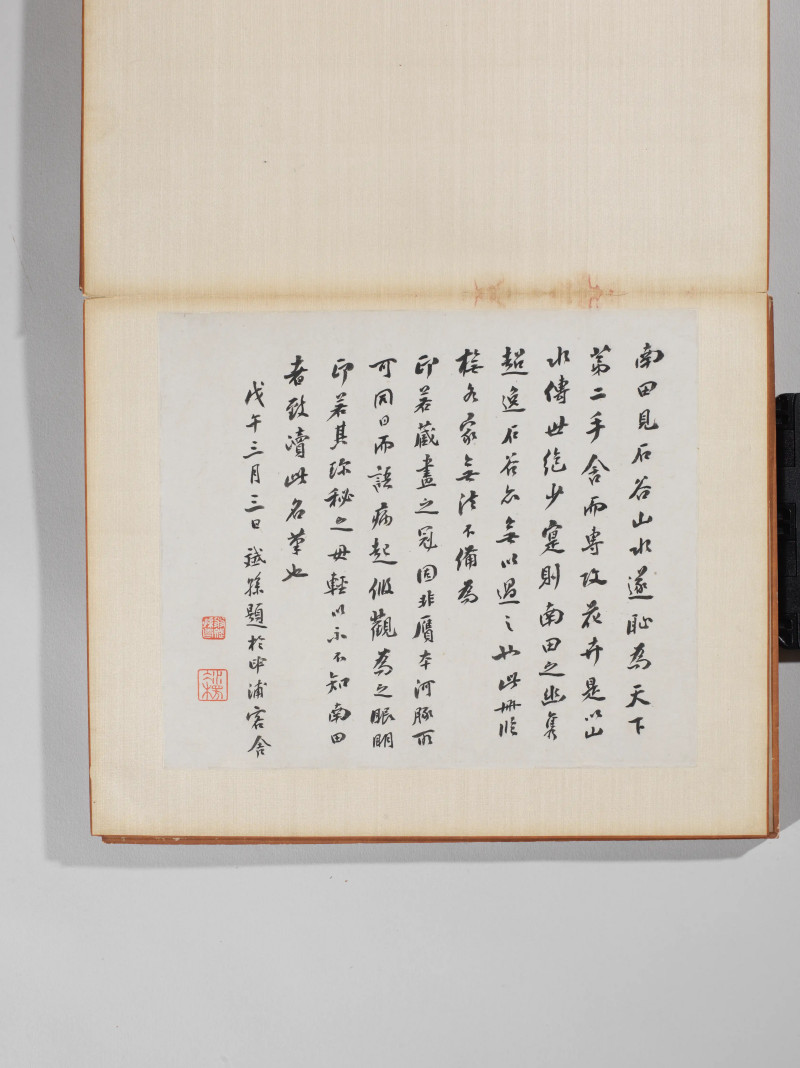 南田見石谷山水遂耻為天下
第二手舍而專攻花卉是以山
水傳世絶少寔則南田之幽雋
超逸石谷亦無以過之也此冊臨
橅各家無法不備為
印若藏畫之冠固非贋本河豚所
可同日而語病起假觀為之眼明
印若其珍秘之毋輕以示不知南田
者致瀆此名筆也
戊午三月三日毓孫題於申浦客舍